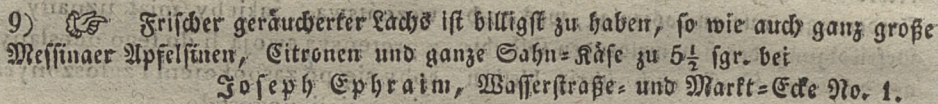 9) ☞ Frischer geräucherter Lachs ist billigst zu haben, so wie auch ganz große
Messinaer Apfelsinen, Citronen und ganze Sahn-Käse zu 5½ sgr. bei
Joseph Ephraim, Wasserstraße- und Markt-Ecke No. 1.